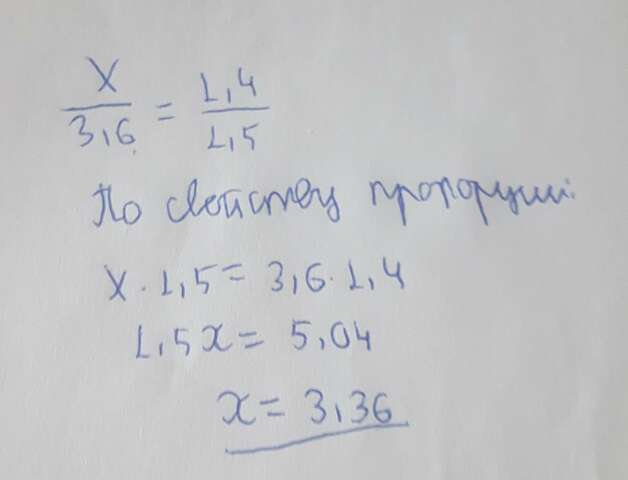 x/3,6 = 1,4/1,5
По свойству пропорции:
x · 1,5 = 3,6 · 1,4
1,5x = 5,04
x = 3,36